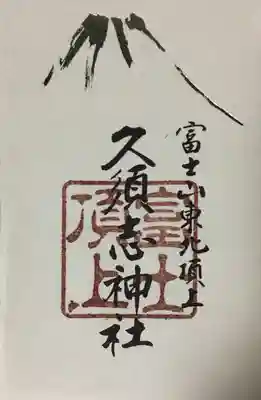 富士山東北頂上
久須志神社
富士
頂上